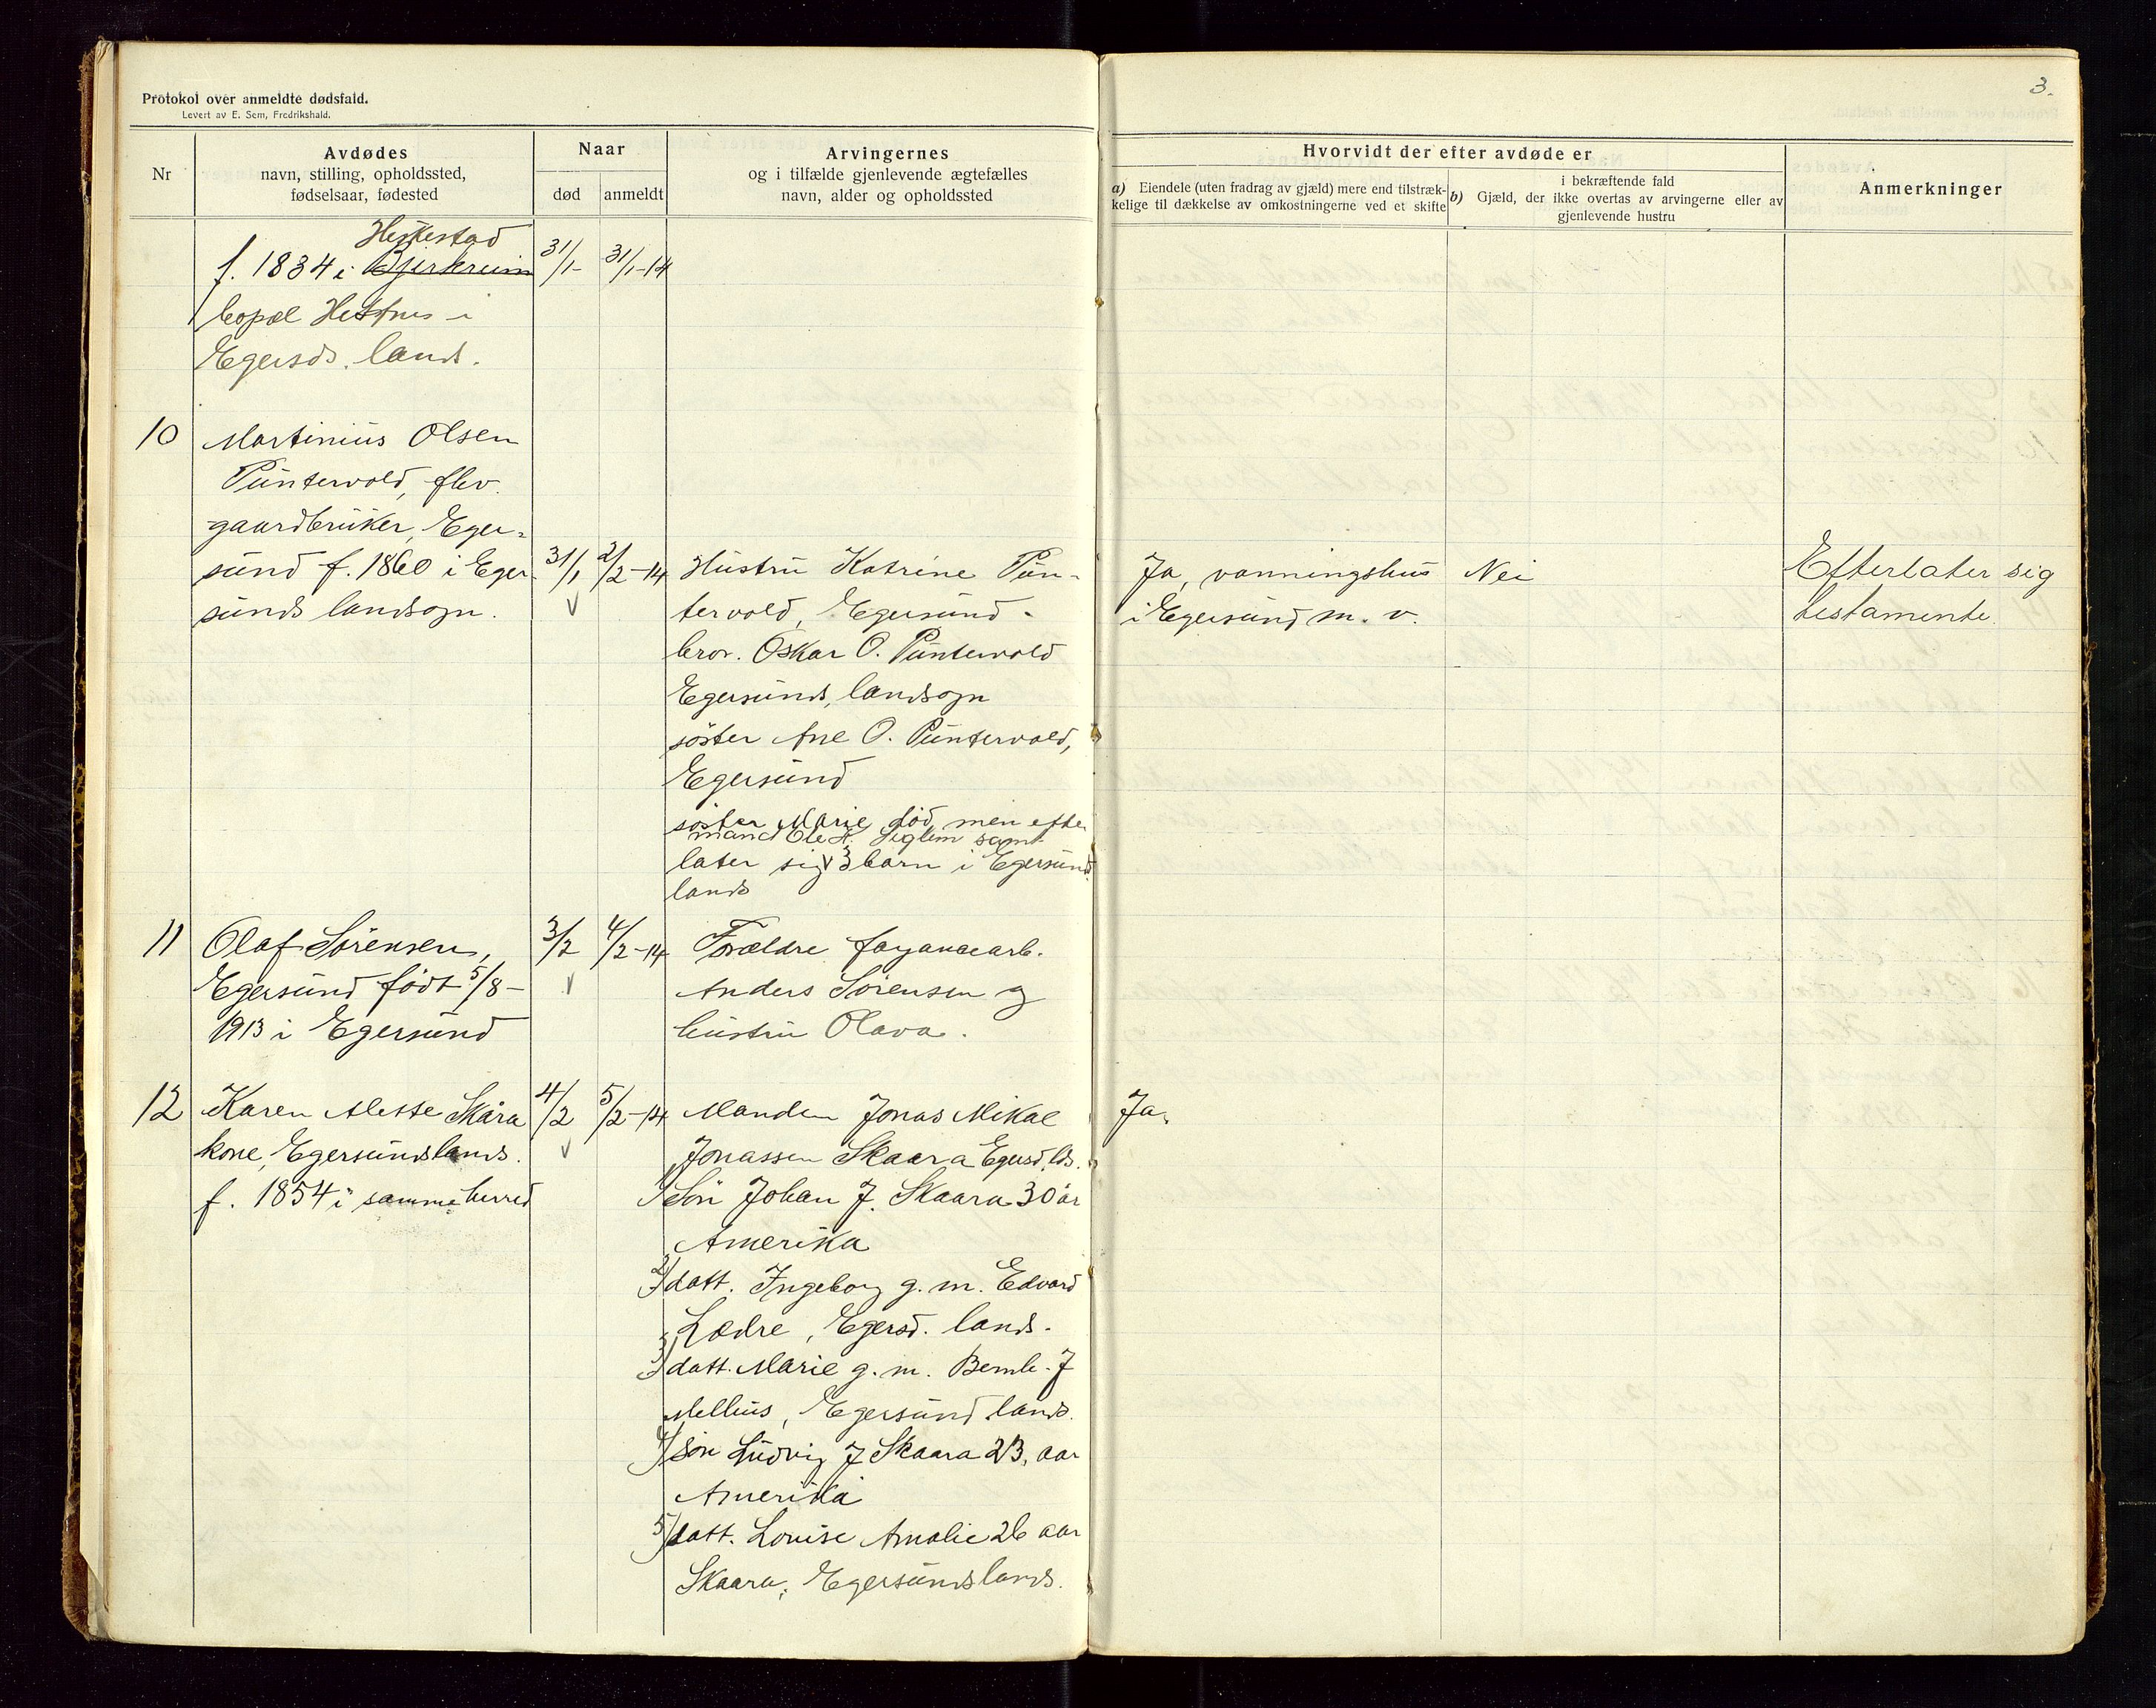 Protokol over anmeldte dødsfald.
Levert av E. Sem, Fredrikshald.
3.
Nr
Avdødes
navn, stilling, opholdssted,
fødselsaar, fødested
Naar
død
anmeldt
Arvingernes
og i tilfælde gjenlevende ægtefælles
navn, alder og opholdssted
Hvorvidt der efter avdøde er
a) Eiendele (uten fradrag av gjæld) mere end tilstræk-
kelige til dækkelse av omkostningerne ved et skifte
i bekræftende fald
b) Gjæld, der ikke overtas av arvingerne eller av
gjenlevende hustru
Anmerkninger
Heskestad
f. 1834 i Bjerkreim 31/1- 31/1-14
bopæl Hestnes i
Egersds. lands.
10 Martinius Olsen
Puntervold, flev.
gaardbruker, Eger-
sund f. 1860 i Eger- 31/1 2/2-14
sunds landsogn. v
Hustru Katrine Pun-
tervold, Egersund-
bror. Oskar O. Puntervold
Egersunds, landsogn
söster Ane O. Puntervold,
Egersund
söster Marie död, men efter
mand Ole K. Seglem samt
later sig v 3 barn i Egersund
lands
Ja, vaaningshus
i Egersund m. v.
Nei
Efterlater sig
testamente.
11 Olaf Sörensen, 3/2 4/2-14
Egersund födt 5/8- v
1913 i Egersund
Forældre fayancearb.
Anders Sörensen og
hustru Olava.
12 Karen Mette Skåra 4/2 5/2-14
kone, Egersundslands. v
f. 1854 i samme herred
Manden Jonas Mikal
Jonassen Skaara Egersd. lds.
1) Sön Johan J. Skaara 30 år
Amerika
2) datt. Ingeborg g. m. Edvard
Lædre, Egersd. lands.
3) datt. Marie g. m. Bernh. J
Mellius, Egersund lands.
4) sön Ludvig J Skaara 23, aar
Amerika
5) datt. Louise Amalie 26 aar
Skaara, Egersunds lands.
Ja.